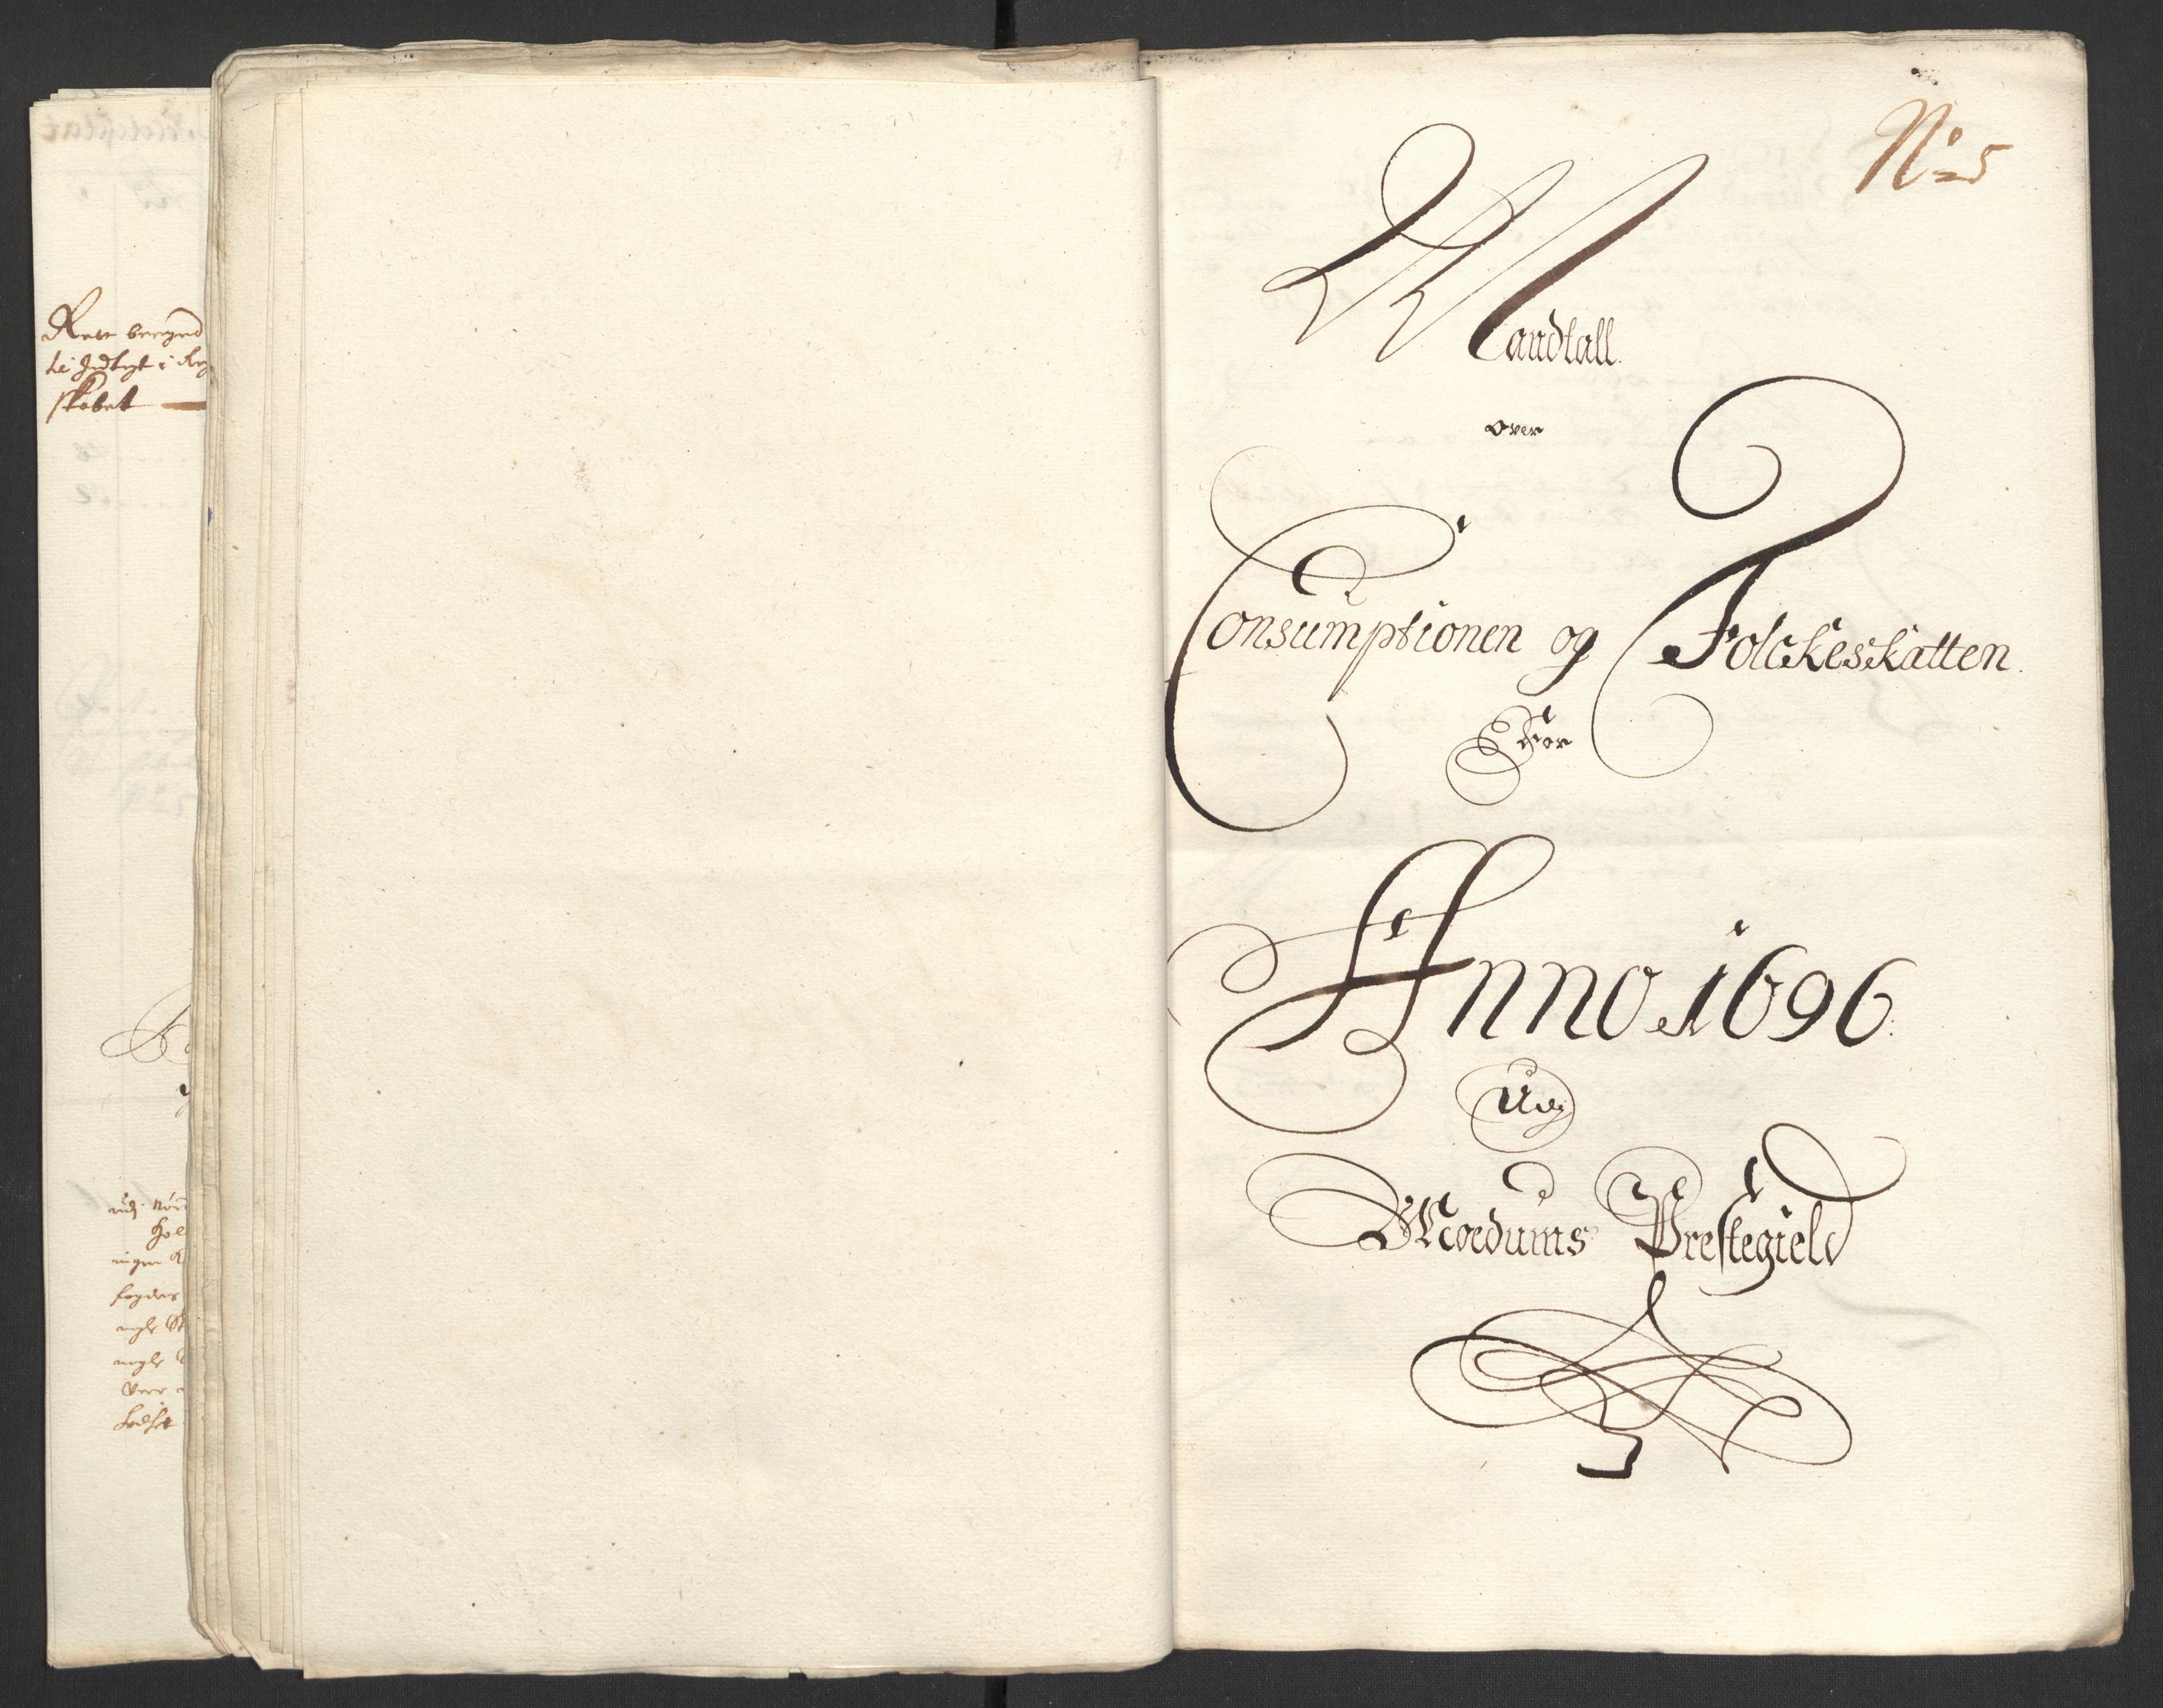 No 5
Mandtall
over
Consumptionen og Folckeskatten
For
Anno 1696
Udj
Moedums Prestegield
skabet
udj